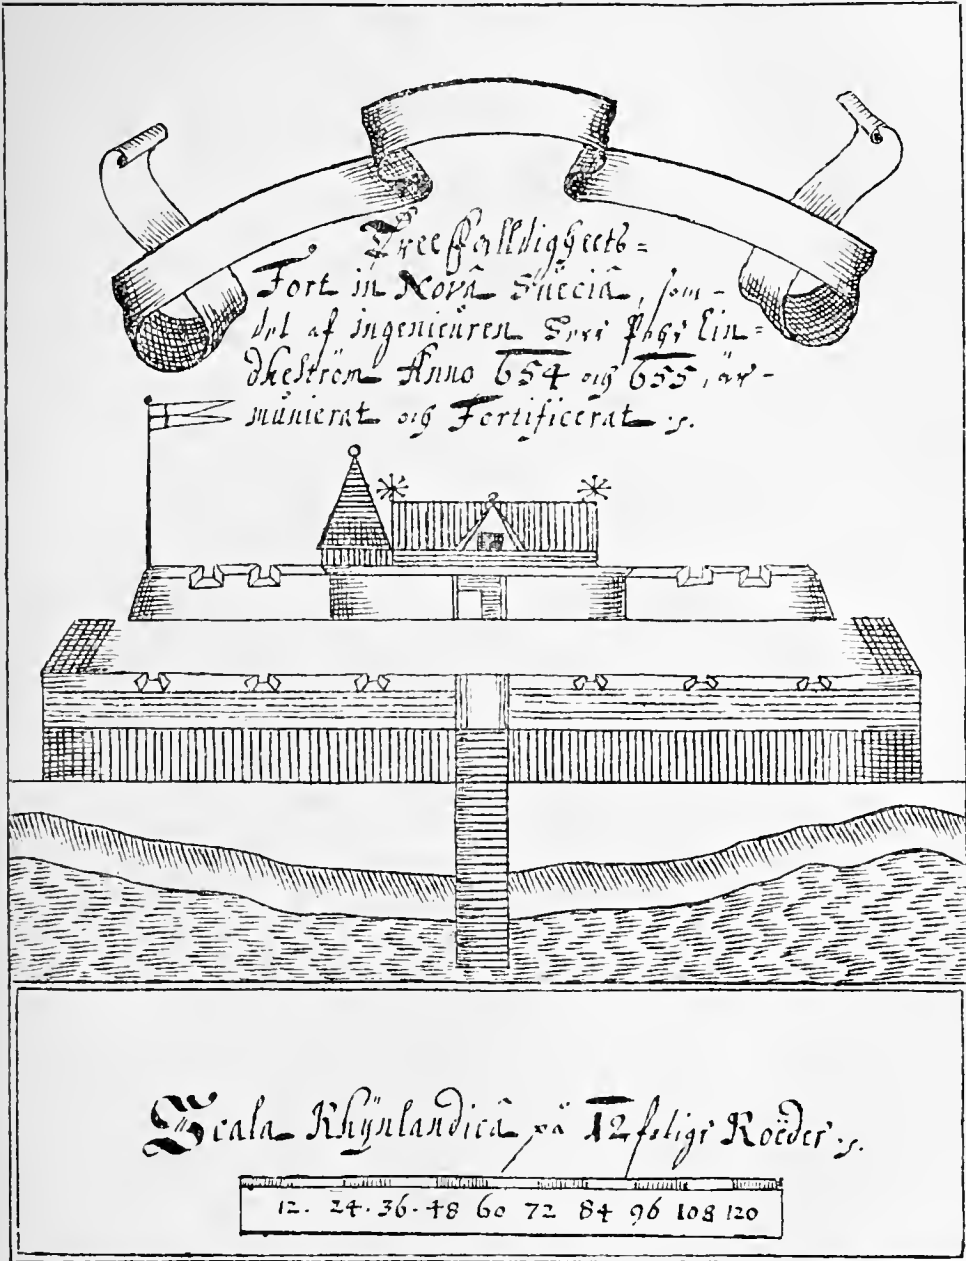 Treefalldigheetz=
Fort in Novâ Suëciâ, som-
det af ingenieuren Perr Lin=
dheström Anno 654 och 655, är-
münierat och Fortificerat.
Scala Rhÿnlandicâ på 12 fotige Roëder.
12. 24. 36. 48 60 72 84 96 108 120